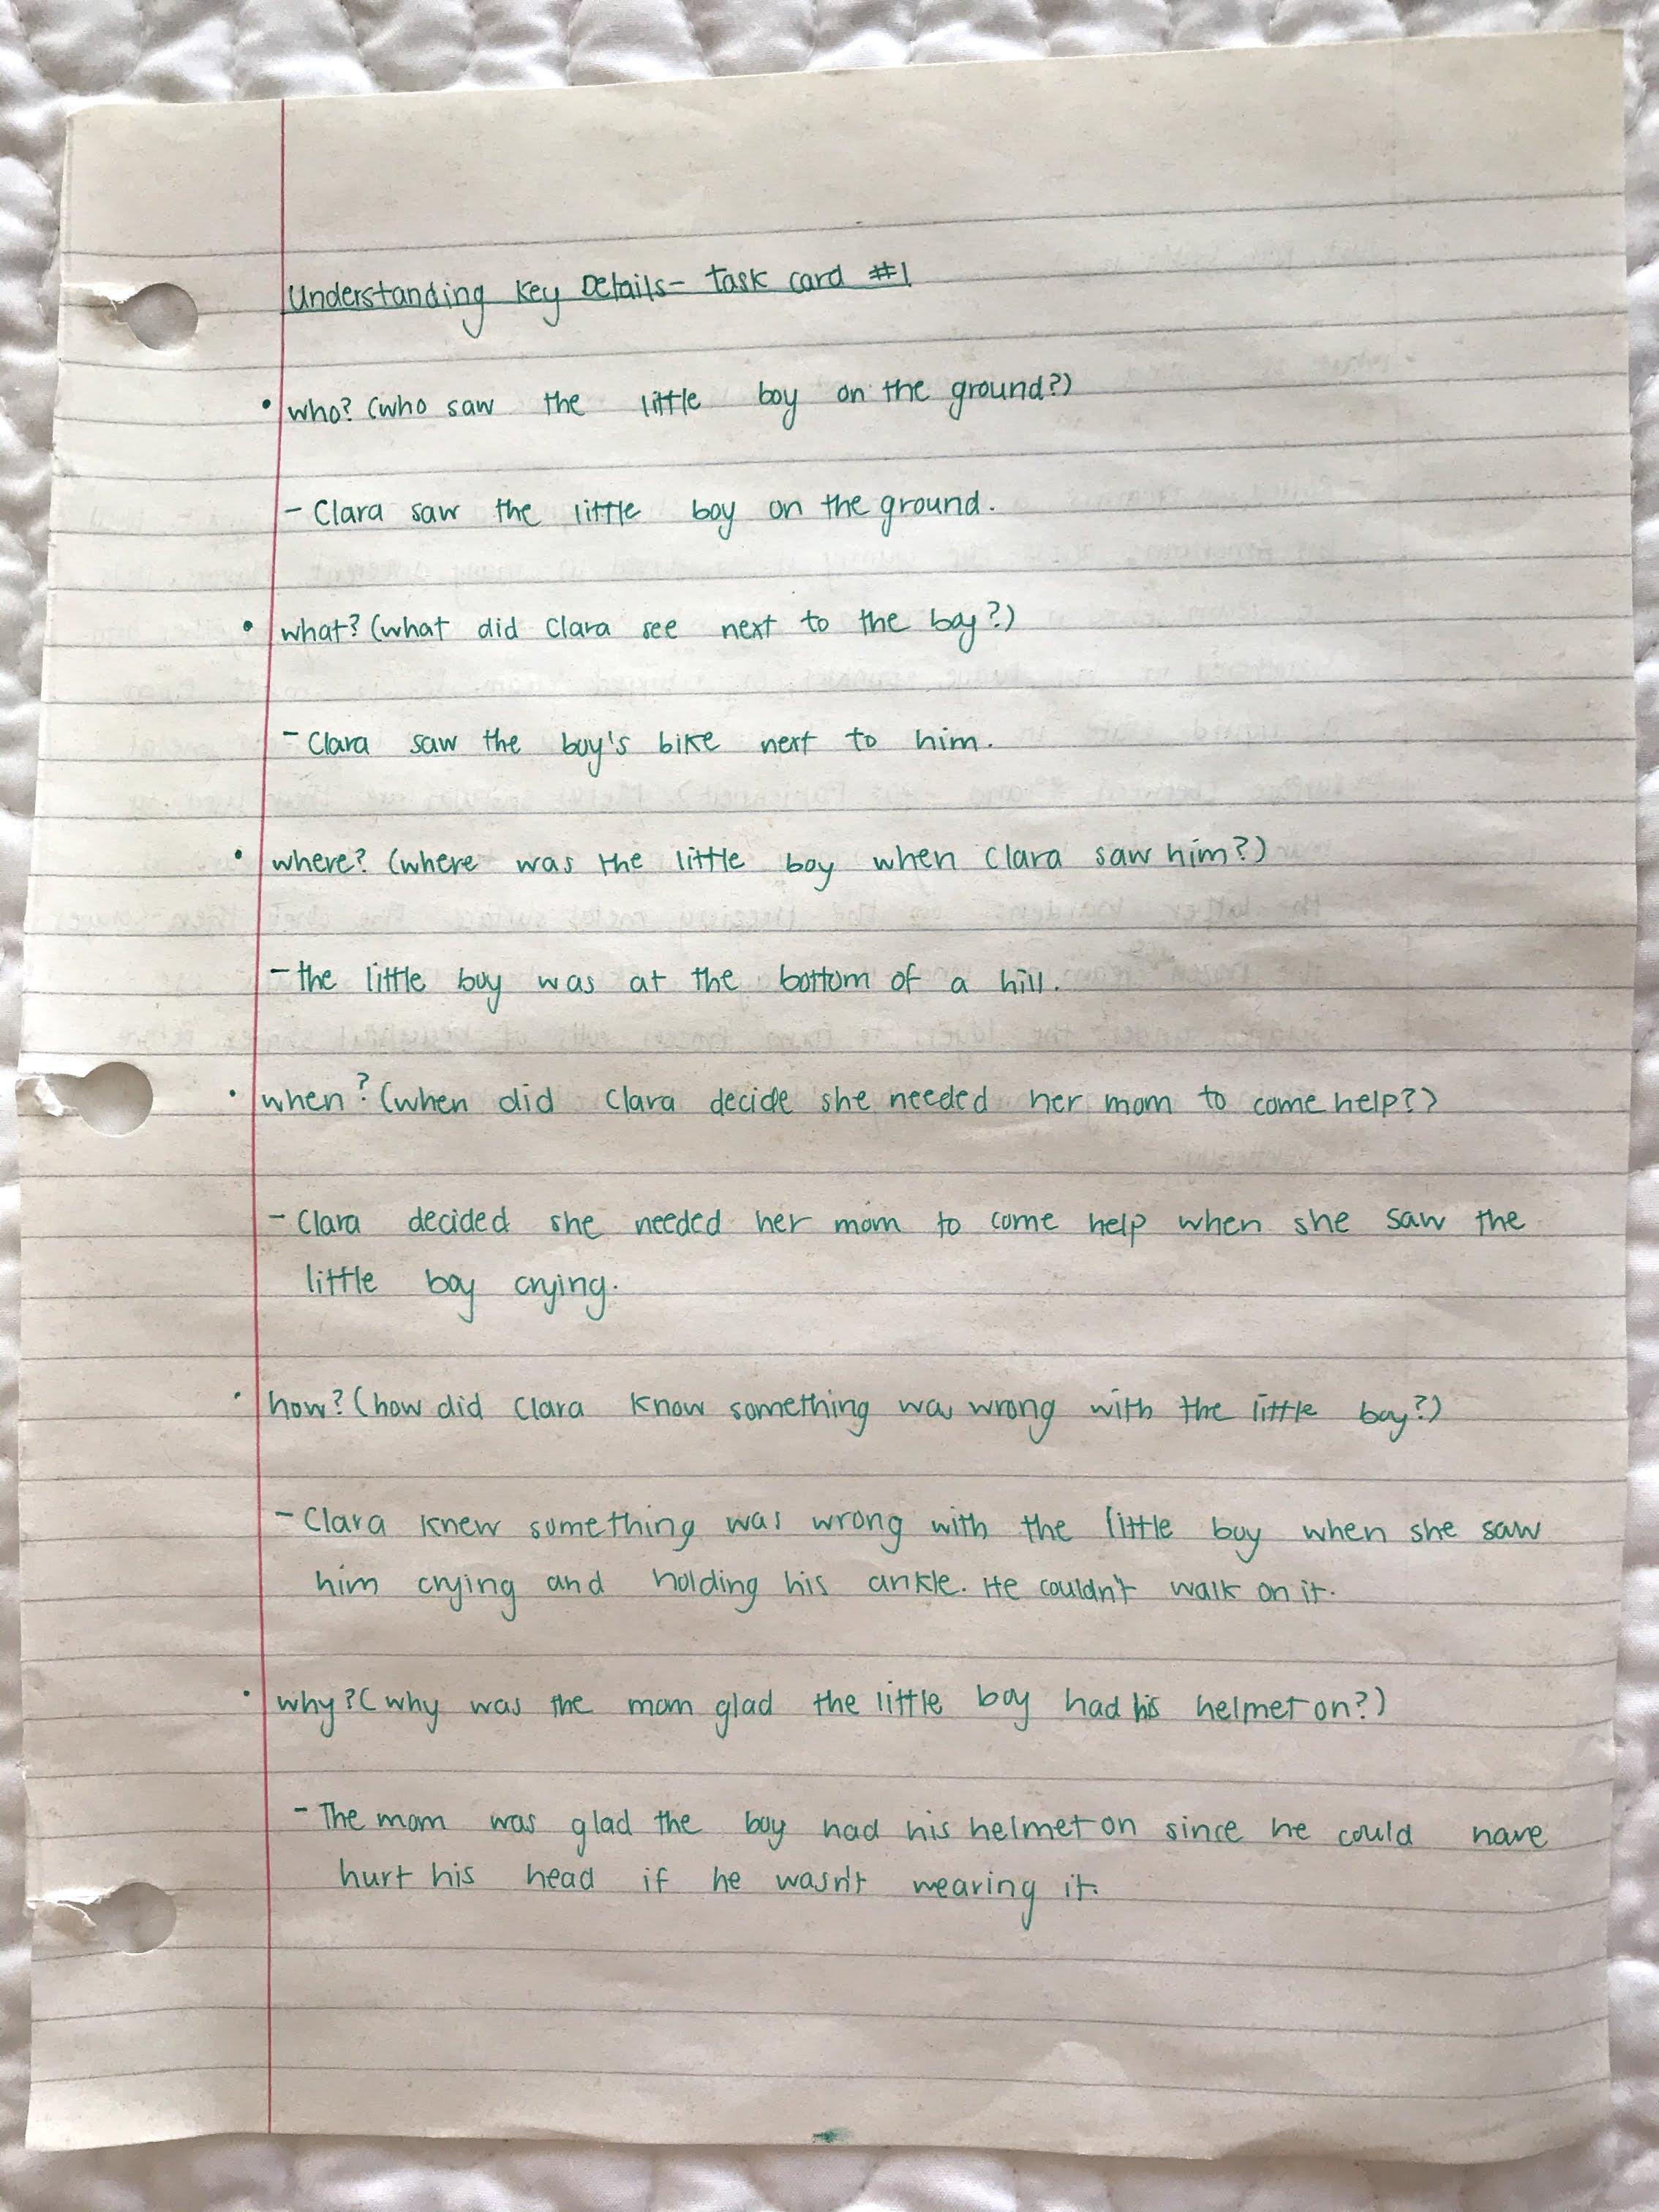 Understanding Key Details- Task card #1
• who? (who saw the little boy on the ground?)
- Clara saw the little boy on the ground.
• what? (what did Clara see next to the boy?)
- Clara saw the boy's bike next to him.
• where? (where was the little boy when Clara saw him?)
- the little boy was at the bottom of a hill.
• when? (when did Clara decide she needed her mom to come help?)
- Clara decided she needed her mom to come help when she saw the
little boy crying.
• how? (how did Clara know something was wrong with the little boy?)
- Clara knew something was wrong with the little boy when she saw
him crying and holding his ankle. He couldn't walk on it.
• why? (why was the mom glad the little boy had his helmet on?)
- The mom was glad the boy had his helmet on since he could have
hurt his head if he wasn't wearing it.